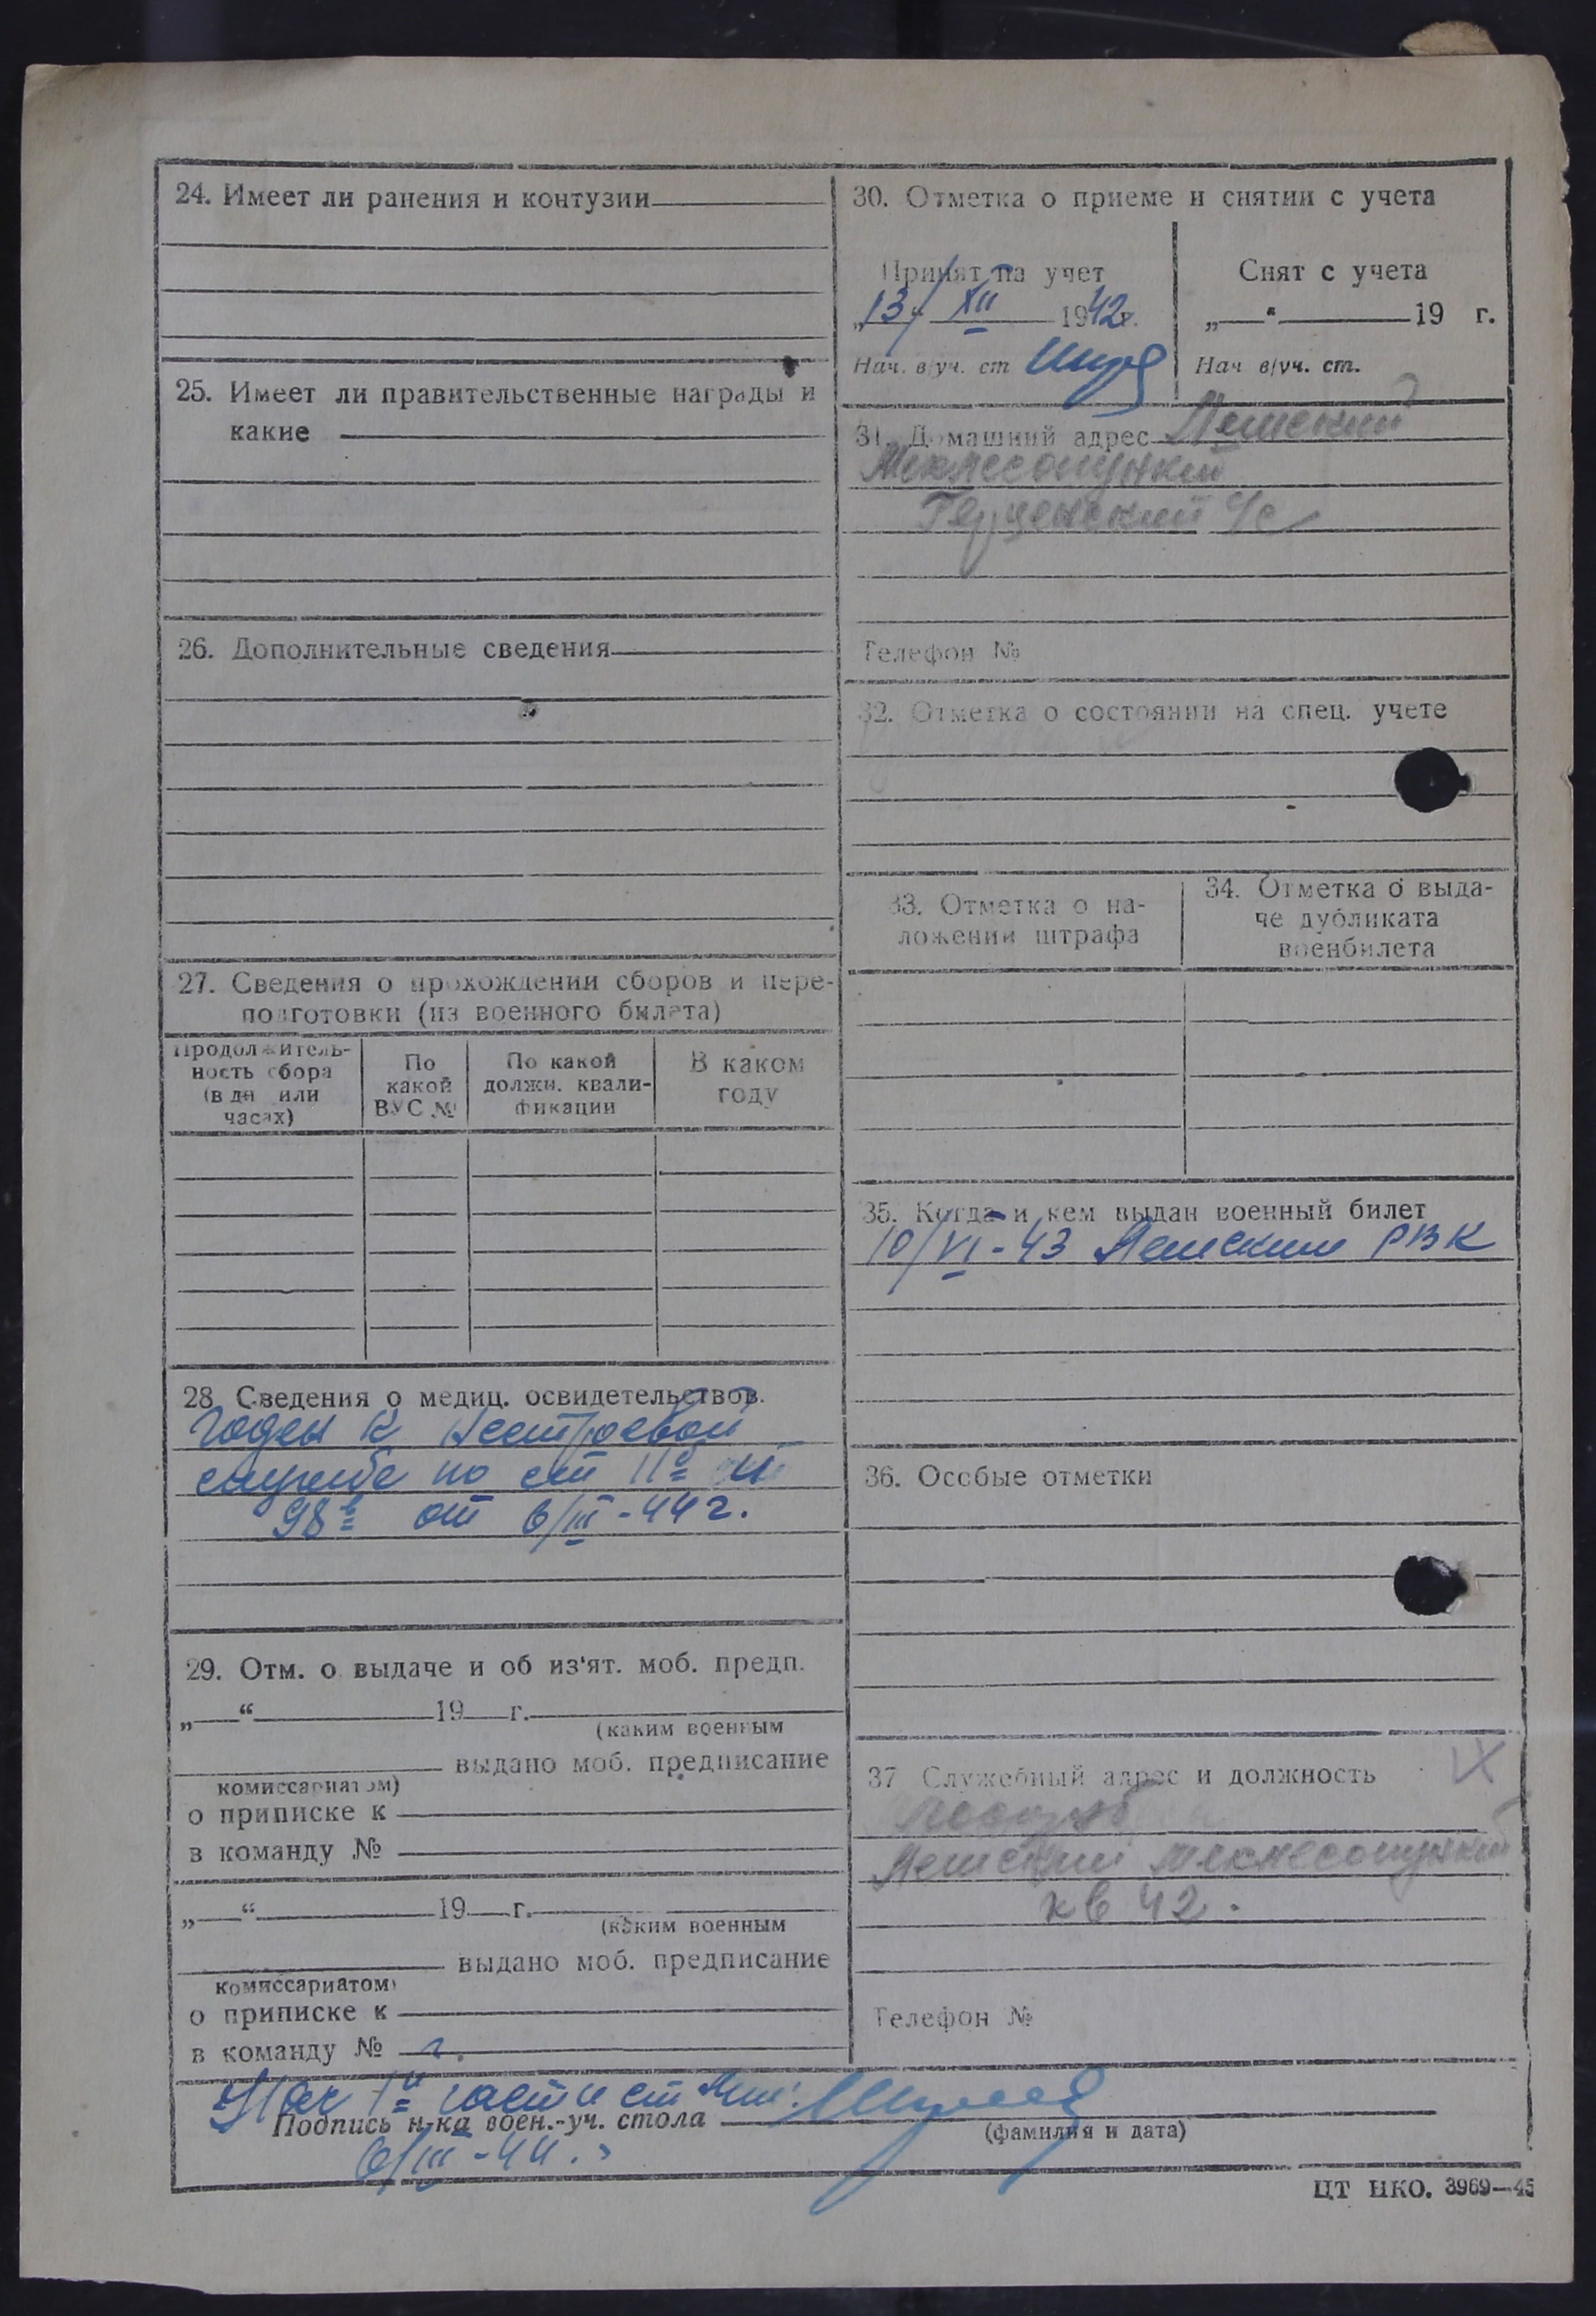 24. Имеет ли ранения и контузии
25. Имеет ли правительственные награды и
какие
26. Дополнительные сведения
27. Сведения о прохождении сборов и пере-
подготовки (из военного билета)
Продолжитель-
ность сбора
(в дн или
часах)
По
какой
ВУС №
По какой
должн. квали-
фикации
В каком
году
28. Сведения о медиц. освидетельствов.
годен к нестроевой
службе по ст IIс
98в от 6/III-44 г.
29. Отм. о выдаче и об из'ят. моб. предп.
„ “ 19 г.
(каким военным
выдано моб. предписание
комиссариатом)
о приписке к
в команду №
„ “ 19 г.
(каким военным
выдано моб. предписание
комиссариатом)
о приписке к
в команду №
30. Отметка о приеме и снятии с учета
Принят на учет
„13“ XII 1942г.
Нач. в/уч. ст
Снят с учета
„ “ 19 г.
Нач в/уч. ст.
31. Домашний адрес
Мехлесопункт
Герценский с/с
Телефон №
32. Отметка о состоянии на спец. учете
33. Отметка о на-
ложении штрафа
34. Отметка о выда-
че дубликата
военбилета
35. Когда и кем выдан военный билет
10/VI-43 РВК
36. Особые отметки
37 Служебный адрес и должность
мехлесопункт
кв 42.
Телефон №
Нач 1й части ст
Подпись н-ка воен.-уч. стола
(фамилия и дата)
6/III-44.
ЦТ НКО. 3969—45